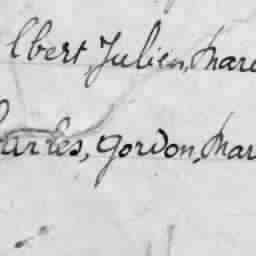 lbert, Julien, Mari
harles, Gordon, Mar